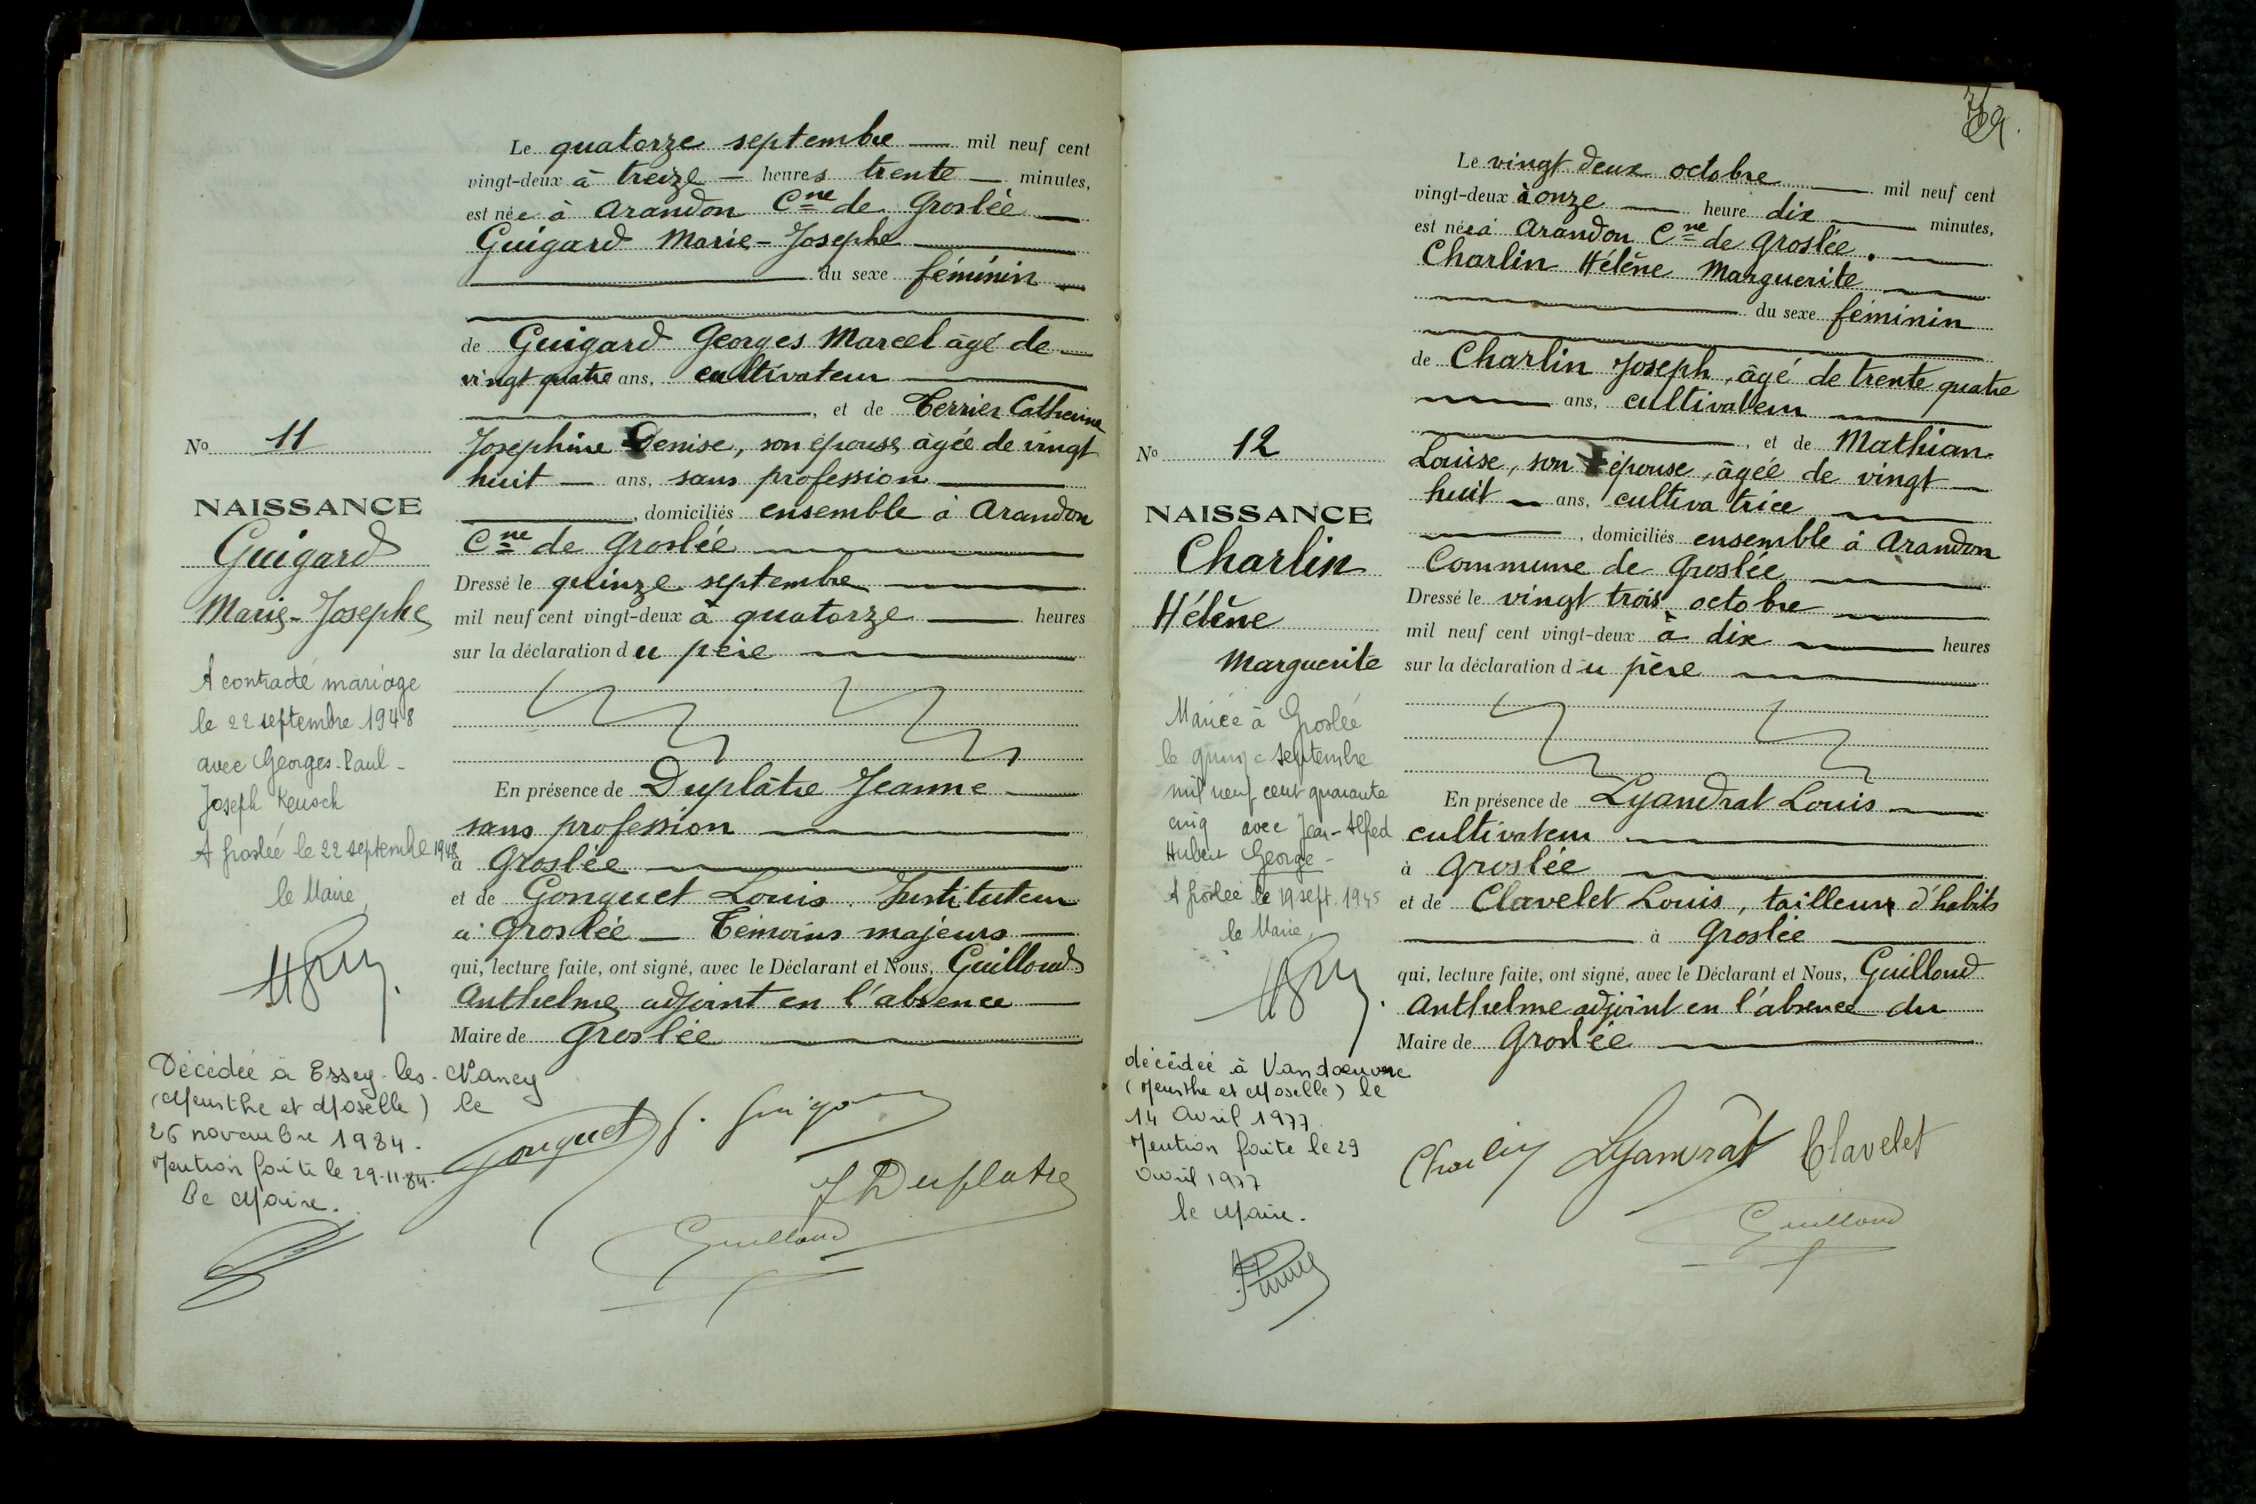 Le quatorze septembre — mil neuf cent
vingt-deux à treize — heures trente — minutes,
est née à Arandon Cne de Groslée —
Guigard Marie-Josephe
du sexe féminin
de Guigard Georges Marcel âgé de
vingt quatre ans, cultivateur
, et de Terrier Catherine
Joséphine Denise, son épouse, âgée de vingt
huit — ans, sans profession
, domiciliés ensemble à Arandon
Cne de Groslée
Dressé le quinze septembre
mil neuf cent vingt-deux à quatorze heures
sur la déclaration du père
En présence de Duplâtre Jeanne
sans profession
à Groslée
et de Gonguet Louis. Instituteur
à Groslée — Témoins majeurs
qui, lecture faite, ont signé, avec le Déclarant et Nous, Guilloud
Anthelme adjoint en l'absence
Maire de Groslée
Gonguet G. Guigard
J Duplatre
Guilloud
No 11
NAISSANCE
Guigard
Marie-Josephe
A contracté mariage
le 22 septembre 1948
avec Georges-Paul-
Joseph Keusch
A Groslée le 22 septembre 1948
le Maire,
Décédée à Essey-les-Nancy
(Meurthe et Moselle) le
26 novembre 1984.
Mention faite le 29-11-84.
Le Maire.
Le vingt deux octobre — mil neuf cent
vingt-deux à onze — heure dix — minutes,
est née à Arandon Cne de Groslée.
Charlin Hélène Marguerite
du sexe féminin
de Charlin Joseph, âgé de trente quatre
ans, cultivateur
, et de Mathian
Louise, son épouse, âgée de vingt
huit — ans, cultivatrice
, domiciliés ensemble à Arandon
Commune de Groslée
Dressé le vingt trois octobre
mil neuf cent vingt-deux à dix heures
sur la déclaration du père
En présence de Lyandrat Louis
cultivateur
à Groslée
et de Clavelet Louis, tailleur d'habits
à Groslée
qui, lecture faite, ont signé, avec le Déclarant et Nous, Guilloud
Anthelme adjoint en l'absence du
Maire de Groslée
Charlin Lyandrat Clavelet
Guilloud
No 12
NAISSANCE
Charlin
Hélène
Marguerite
Mariée à Groslée
le quinze septembre
mil neuf cent quarante
cinq avec Jean-Alfred
Hubert George-
A Groslée le 19 sept. 1945
le Maire,
décédée à Vandoeuvre
(Meurthe et Moselle) le
14 Avril 1977.
Mention faite le 29
Avril 1977
le Maire.